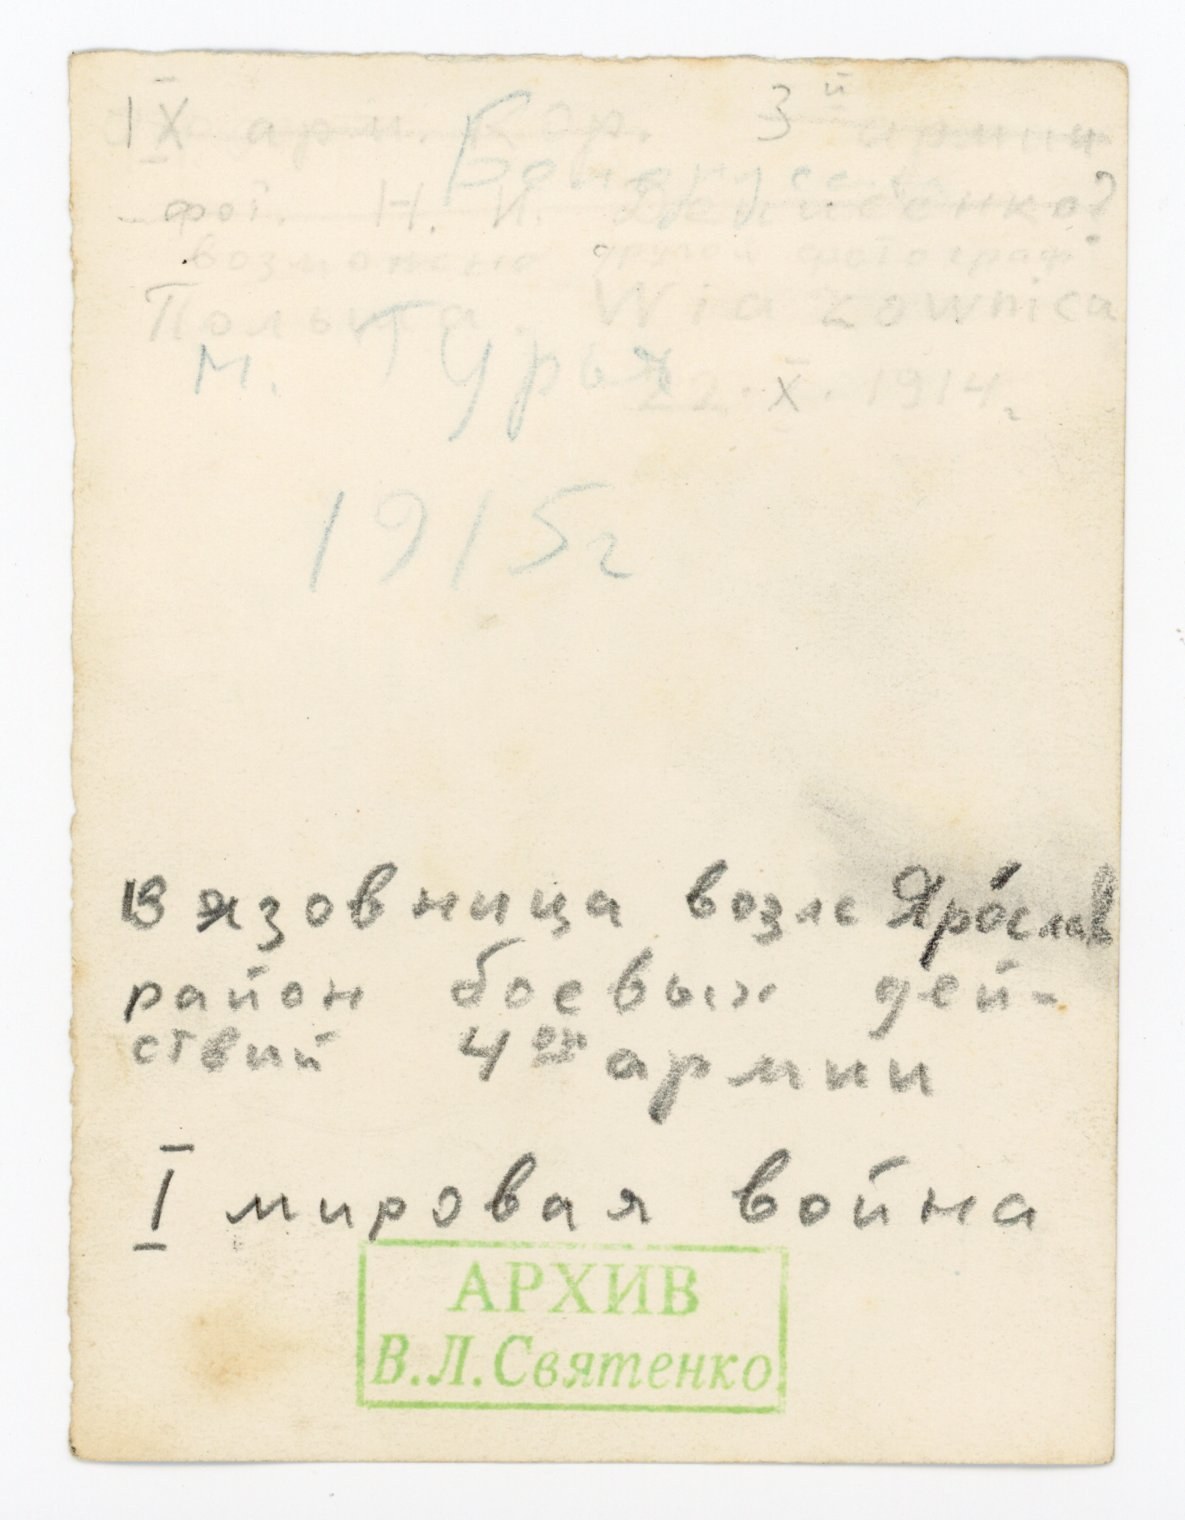 IX арм. Кор. 3й армии
фот. Н. И. Денисенко?
возможно другой фотограф
Польша. Wiązownica
м. Турья
22.X.1914г
1915г
Вязовница возле Ярослав
район боевых дей-
ствий 4ой армии
I мировая война
АРХИВ
В.Л.Святенко